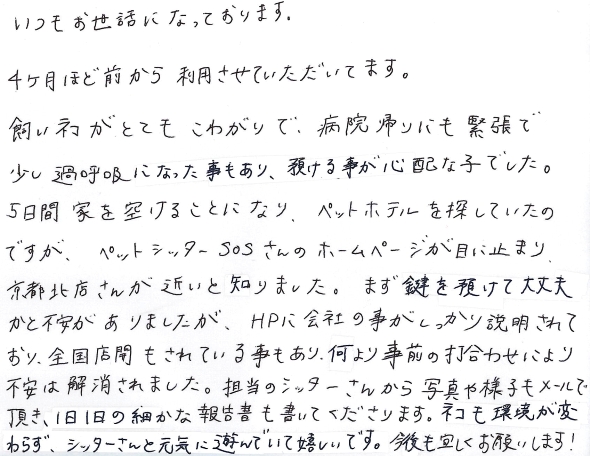 いつもお世話になっております。
4ヶ月ほど前から利用させていただいてます。
飼いネコがとてもこわがりで、病院帰りにも緊張で
少し過呼吸になった事もあり、預ける事が心配な子でした。
5日間家を空けることになり、ペットホテルを探していたの
ですが、ペットシッターSOSさんのホームページが目に止まり、
京都北店さんが近いと知りました。まず鍵を預けて大丈夫
かと不安がありましたが、HPに会社の事がしっかり説明されて
おり、全国店開もされている事もあり、何より事前の打合わせにより
不安は解消されました。担当のシッターさんから写真や様子もメールで
頂き、1日1日の細かな報告書も書いてくださります。ネコも環境が変
わらず、シッターさんと元気に遊んでいて嬉しいです。今後も宜しくお願いします!